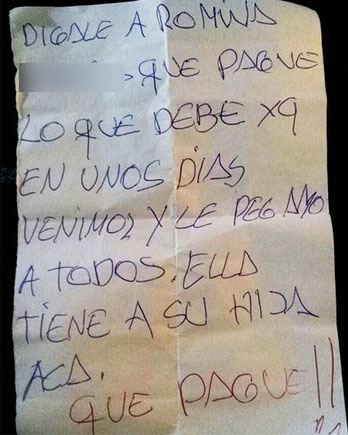 DIGALE A ROMINA
QUE PAGUE
LO QUE DEBE XQ
EN UNOS DIAS
VENIMOS Y LE PEGAMO
A TODOS. ELLA
TIENE A SU HIJA
ACA.
QUE PAGUE!!